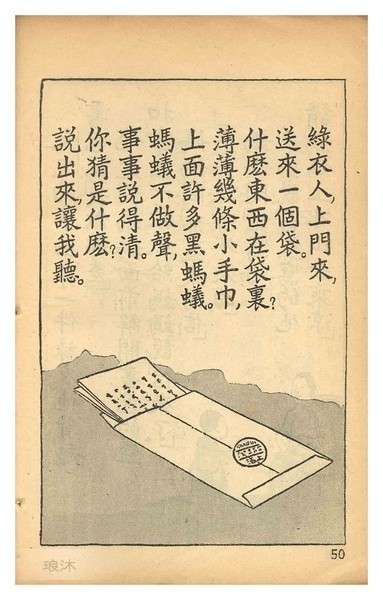 綠衣人，上門來，
送來一個袋。
什麽東西在袋裏？
薄薄幾條小手巾，
上面許多黑螞蟻。
螞蟻不做聲，
事事說得清。
你猜是什麽？
說出來，讓我聽。
50
琅沐